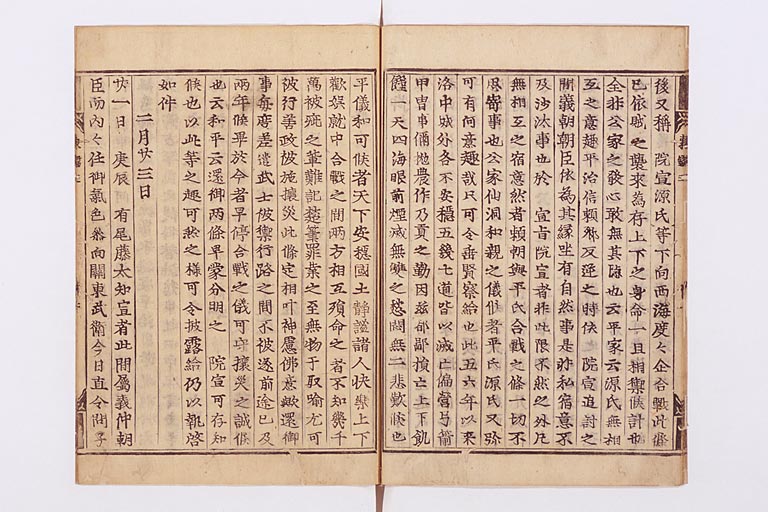 後又稱 院宣源氏等下向西海度々企合戰此條
已依賊之襲來為存上下之身命一旦相禦候計也
全非公家之發心敢無其隠也云平家云源氏無相
互之意趣平治信頼卿反逆之時依 院宣追討之
間義朝朝臣依為其縁坐有自然事是非私宿意不
及沙汰事也於 宣旨院宣者非此限不然之外凡
無相互之宿意然者頼朝與平氏合戰之條一切不
思寄事也公家仙洞和親之儀候者平氏源氏又弥
可有何意趣哉只可令垂賢察給也此五六年以來
洛中城外各不安穏五畿七道皆以滅亡偏營弓箭
甲冑事併抛農作乃貢之勤因茲都鄙損亡上下飢
饉一天四海眼前煙滅無雙之愁悶無二悲歎候也
平儀和可候者天下安穏國土靜謐諸人快樂上下
歡娯就中合戰之間兩方相互殞命之者不知幾千
萬被疵之輩難記楚筆罪業之至無物于取喩尤可
被行善政被施攘災此條定相叶神慮佛意歟還御
事毎度差遣武士被禦行路之間不被遂前途已及
兩年候畢於今者早停合戰之儀可守攘災之誠候
也云和平云還御兩條早蒙分明之 院宣可存知
候也以此等之趣可然之様可令披露給仍以執啓
如件
二月廿三日
廿一日 庚辰 有尾藤太知宣者此間屬義仲朝
臣而内々任御氣色参向關東武衛今日直令問子